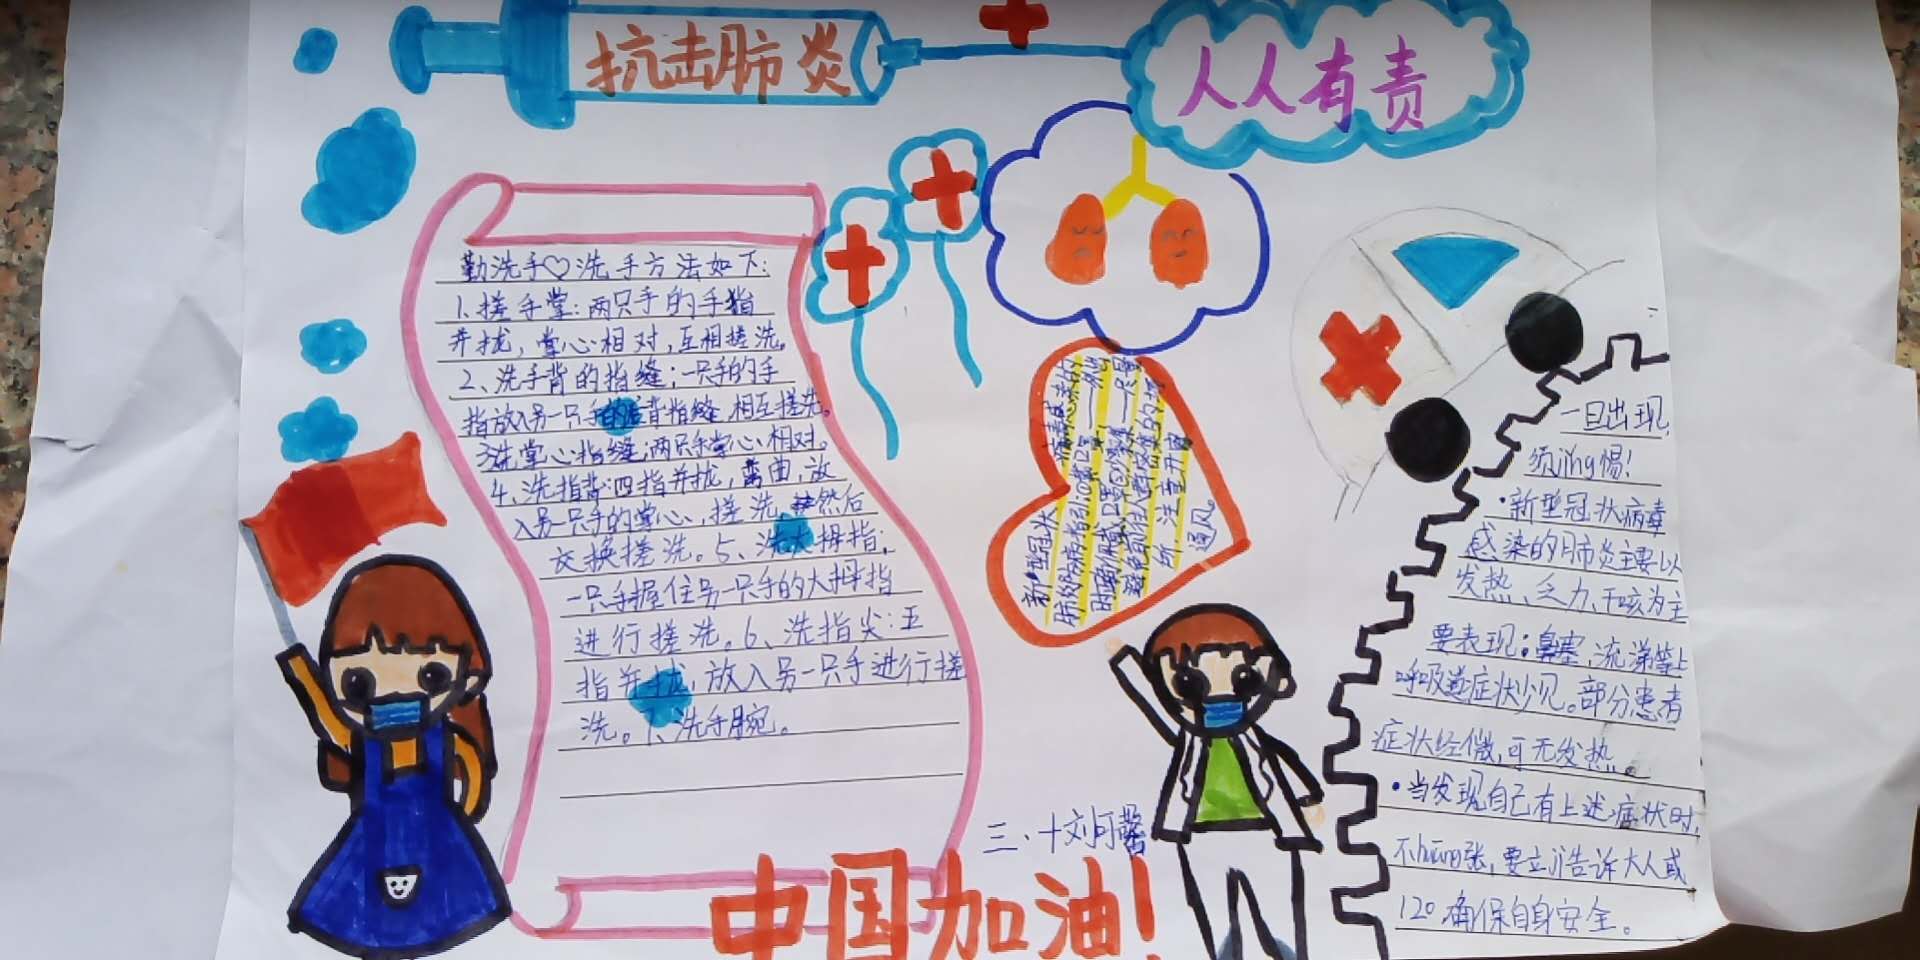 抗击肺炎
人人有责
勤洗手♡洗手方法如下:
1.搓手掌:两只手的手指
并拢,掌心相对,互相搓洗。
2、洗手背的指缝;一只手的手
指放入另一只手的手背指缝,相互搓洗。
3洗掌心指缝;两只手掌心相对。
4、洗指背:四指并拢,弯曲,放
入另一只手的掌心,搓洗,然后
交换搓洗。5、洗大拇指;
一只手握住另一只手的大拇指
进行搓洗。6、洗指尖:五
指并拢,放入另一只手进行搓
洗。7、洗手腕。
新型冠状
通风。
一旦出现,
须jǐng惕!
·新型冠状病毒
感染的肺炎主要以
发热、乏力、干咳为主
要表现;鼻塞,流涕等上
呼吸道症状少见。部分患者
症状轻微,可无发热。
·当发现自己有上述症状时,
不huāng张,要立jí告诉大人或
120确保自身安全。
三、十刘可馨
中国加油!